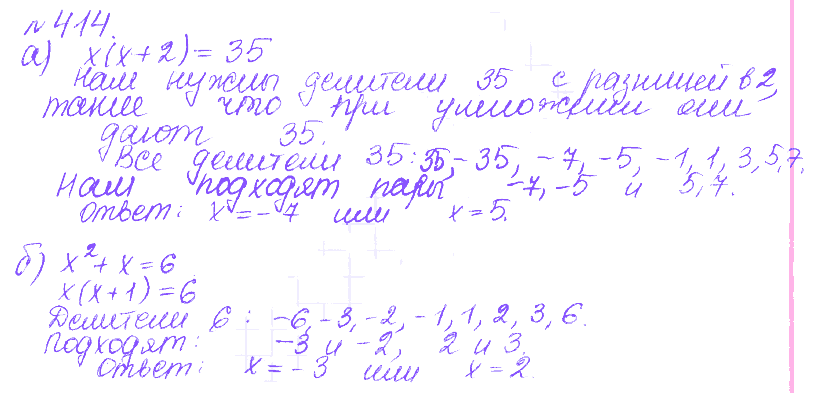 №414.
а) x(x+2)=35
Нам нужны делители 35 с разницей в 2,
такие что при умножении они
дают 35.
Все делители 35: 35, -35, -7, -5, -1, 1, 3, 5, 7.
Нам подходят пары -7, -5 и 5, 7.
Ответ: x=-7 или x=5.
б) x²+x=6
x(x+1)=6
Делители 6: -6, -3, -2, -1, 1, 2, 3, 6.
Подходят: -3 и -2, 2 и 3.
Ответ: x=-3 или x=2.